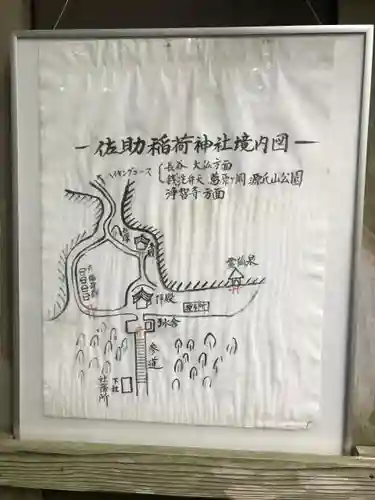 佐助稲荷神社境内図
ハイキングコース
長谷 大仏方面
銭洗弁天 葛原ヶ岡 源氏山公園
浄智寺方面
本殿
霊狐泉
拝殿
参道
下社
社務所